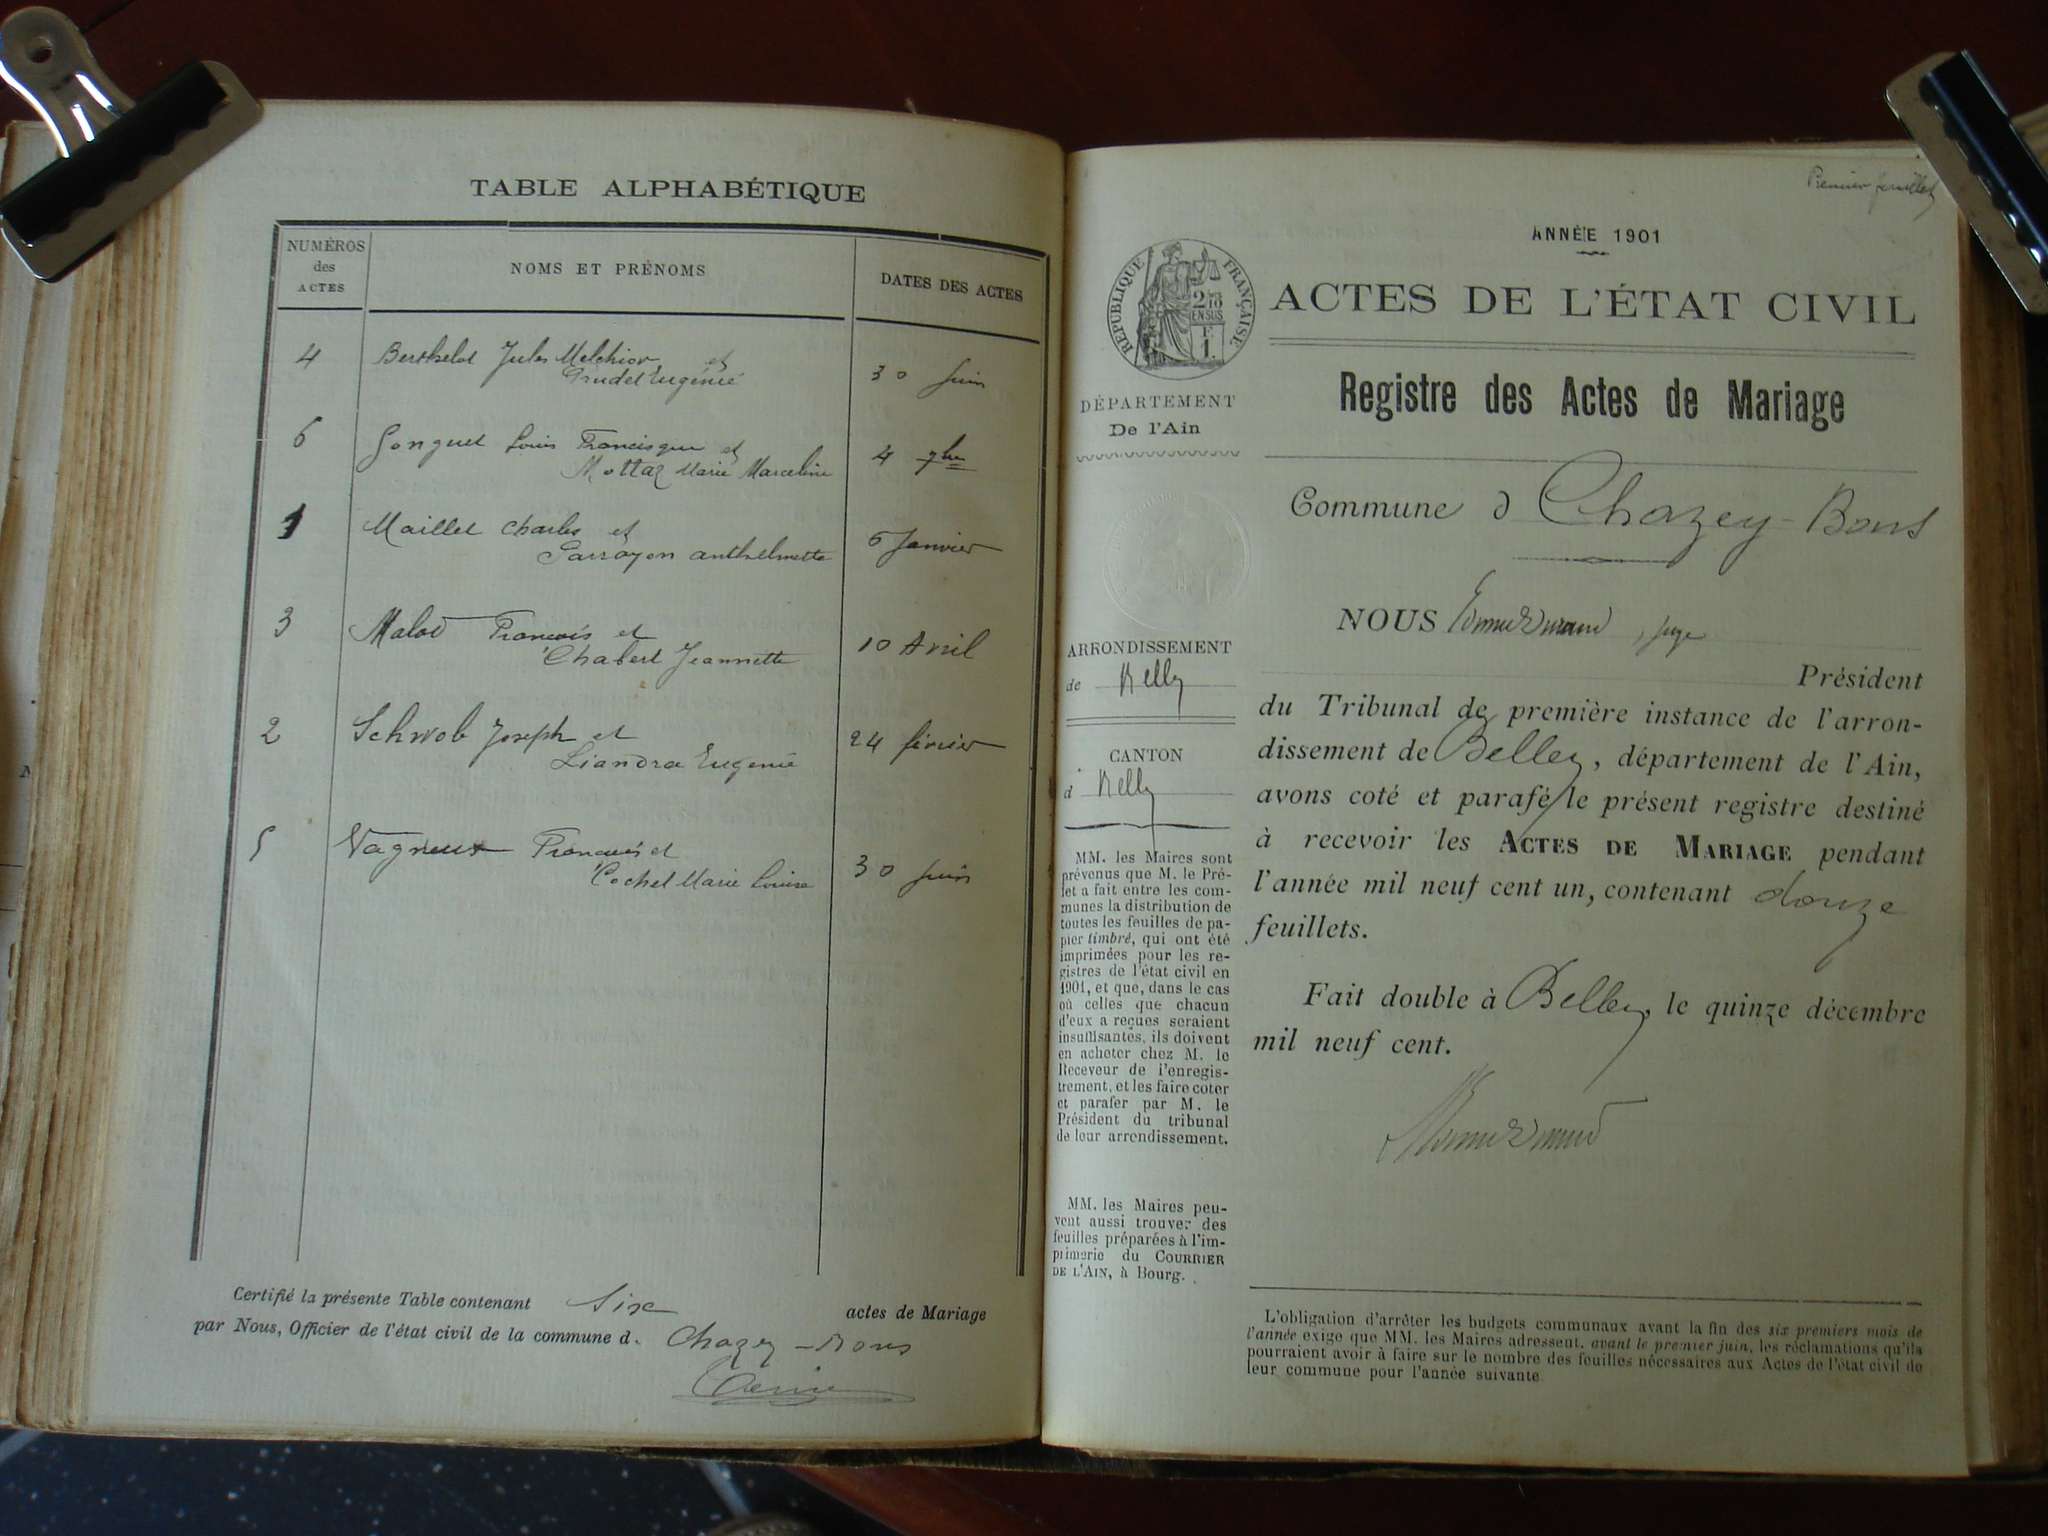 TABLE ALPHABÉTIQUE
NUMÉROS
des
ACTES
NOMS ET PRÉNOMS
DATES DES ACTES
4 Berthelot Jules Melchior et
Grudet Eugénie 30 Juin
6 Gonguet Louis Francisque et
Mottaz Marie Marceline 4 7bre
1 Maillet Charles et
Parrayon anthelmette 6 Janvier
3 Malod François et
Chabert Jeannette 10 Avril
2 Schwob Joseph et
Liandra Eugenie 24 février
5 Vagneux François et
Cochet Marie Louise 30 Juin
Certifié la présente Table contenant Six actes de Mariage
par Nous, Officier de l'état civil de la commune d. Chazey-Bons
Premier feuillet
ANNÉE 1901
RÉPUBLIQUE FRANÇAISE
ACTES DE L'ÉTAT CIVIL
Registre des Actes de Mariage
DÉPARTEMENT
De l'Ain
Commune d Chazey-Bons
ARRONDISSEMENT
de Belley
CANTON
d Belley
MM. les Maires sont
prévenus que M. le Pré-
fet a fait entre les com-
munes la distribution de
toutes les feuilles de pa-
pier timbré, qui ont été
imprimées pour les re-
gistres de l'état civil en
1901, et que, dans le cas
où celles que chacun
d'eux a reçues seraient
insuffisantes, ils doivent
en acheter chez M. le
Receveur de l'enregis-
trement, et les faire coter
et parafer par M. le
Président du tribunal
de leur arrondissement.
MM. les Maires peu-
vent aussi trouver des
feuilles préparées à l'im-
primerie du COURRIER
DE L'AIN, à Bourg.
NOUS , juge
Président
du Tribunal de première instance de l'arron-
dissement de Belley, département de l'Ain,
avons coté et parafé le présent registre destiné
à recevoir les ACTES DE MARIAGE pendant
l'année mil neuf cent un, contenant douze
feuillets.
Fait double à Belley, le quinze décembre
mil neuf cent.
L'obligation d'arrêter les budgets communaux avant la fin des six premiers mois de
l'année exige que MM. les Maires adressent, avant le premier juin, les réclamations qu'ils
pourraient avoir à faire sur le nombre des feuilles nécessaires aux Actes de l'état civil de
leur commune pour l'année suivante